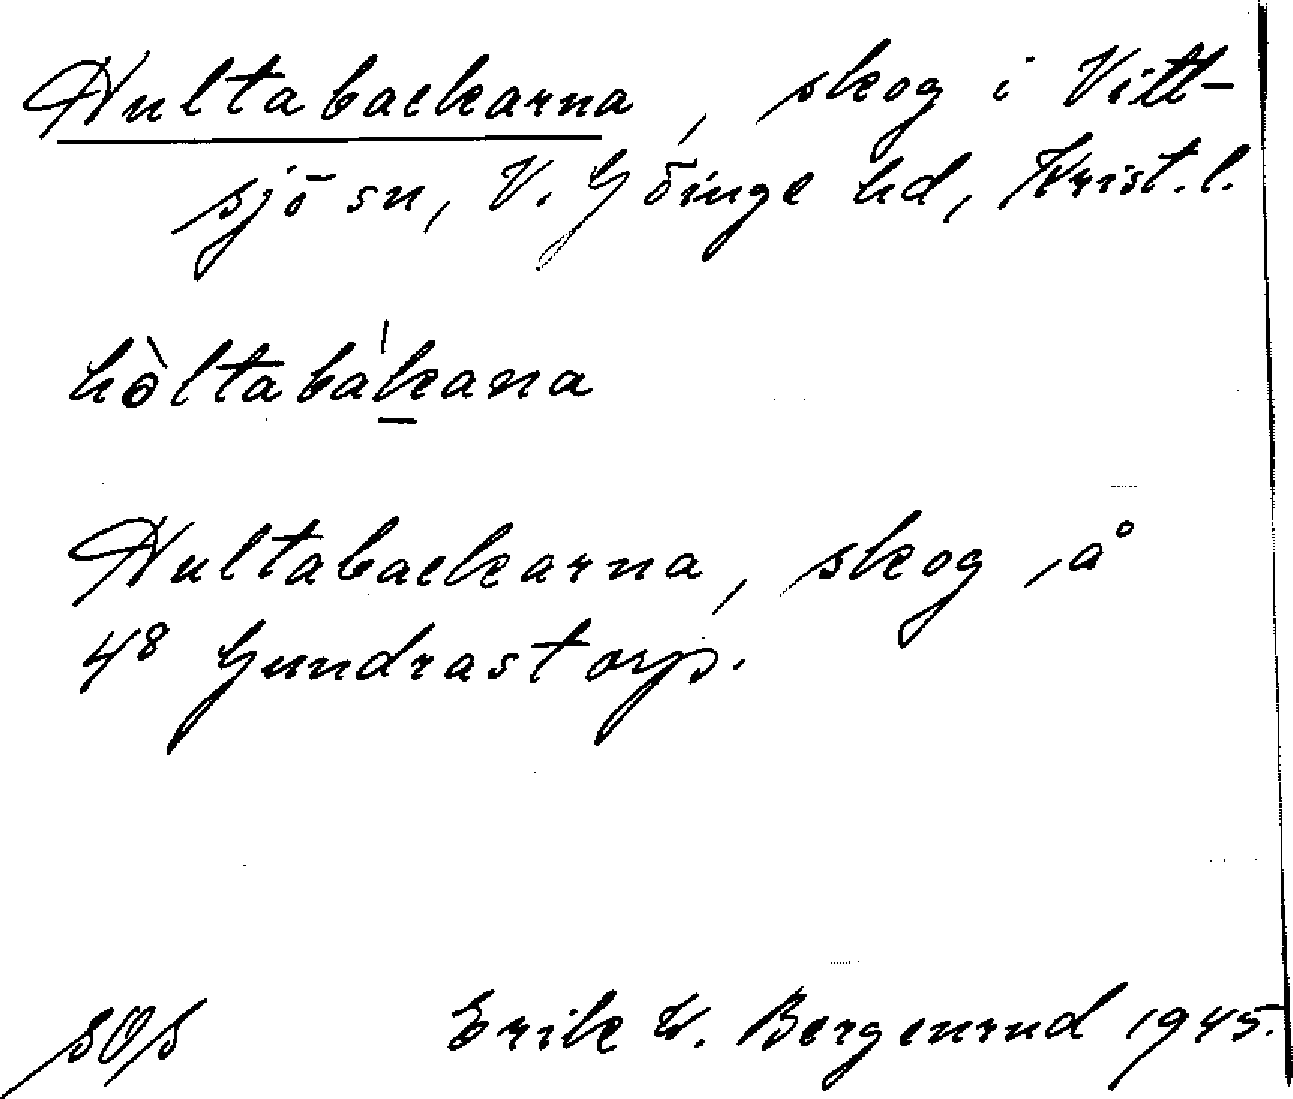 Hultabackarna, skog i Vitt-
sjö sn, V. Göinge hd, Krist. l.
hòltabàkana
Hultabackarna, skog på
4⁸ Gundrastorp.
SOS Erik W. Bergenrud 1945.